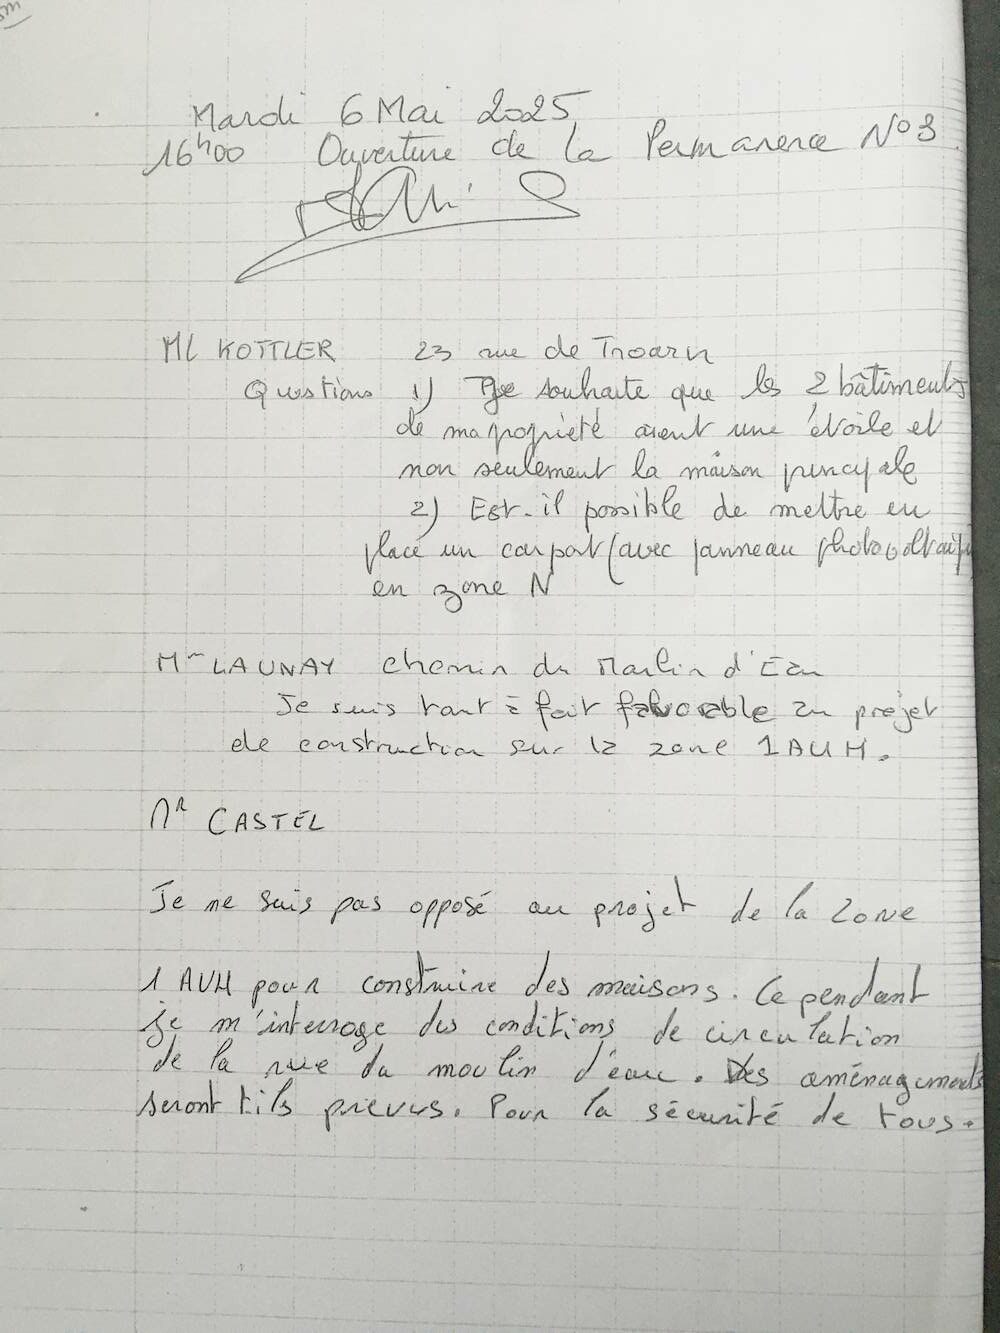 Mardi 6 Mai 2025
16h00 Ouverture de la Permanence N°3
ML KOTTLER 23 rue de Troarn
Questions 1) Je souhaite que les 2 bâtiments
de ma propriété aient une étoile et
non seulement la maison principale
2) Est-il possible de mettre en
place un carport (avec panneau photovoltaïque
en zone N
Mme LAUNAY chemin du Moulin d'Eau
Je suis tout à fait favorable au projet
de construction sur la zone 1AUH.
Mr CASTEL
Je ne suis pas opposé au projet de la zone
1 AUH pour construire des maisons. Cependant
je m'interroge des conditions de circulation
de la rue du moulin d'eau. Des aménagements
seront t'ils prévus. Pour la sécurité de tous.